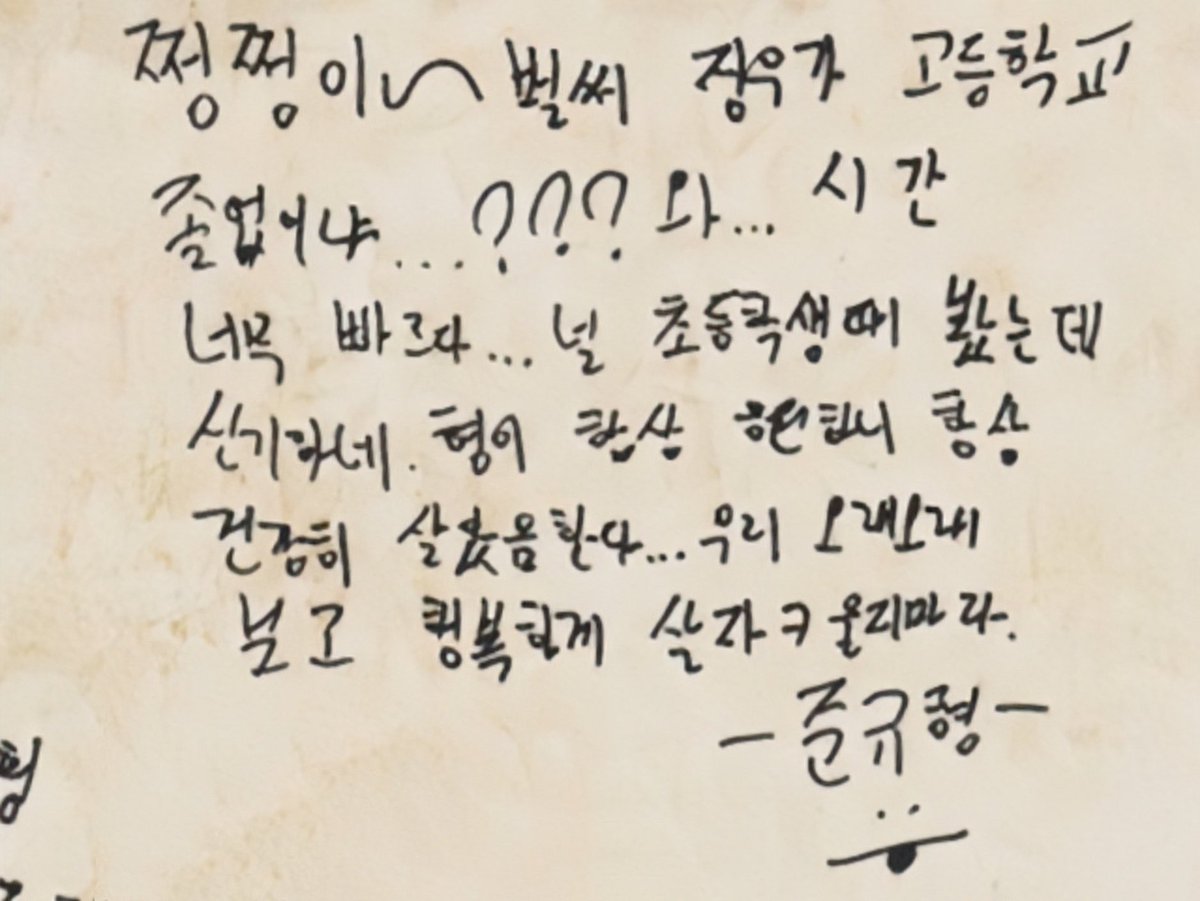 쩡쩡이~ 벌써 정우가 고등학교
졸업이냐...??? 와... 시간
너무 빠르다... 널 초등학생때 봤는데
신기하네. 형이 항상 응원하니 항상
건강히 살았음한다... 우리 오래오래
보고 행복하게 살자ㅋ 울지마라.
-준규형-
형